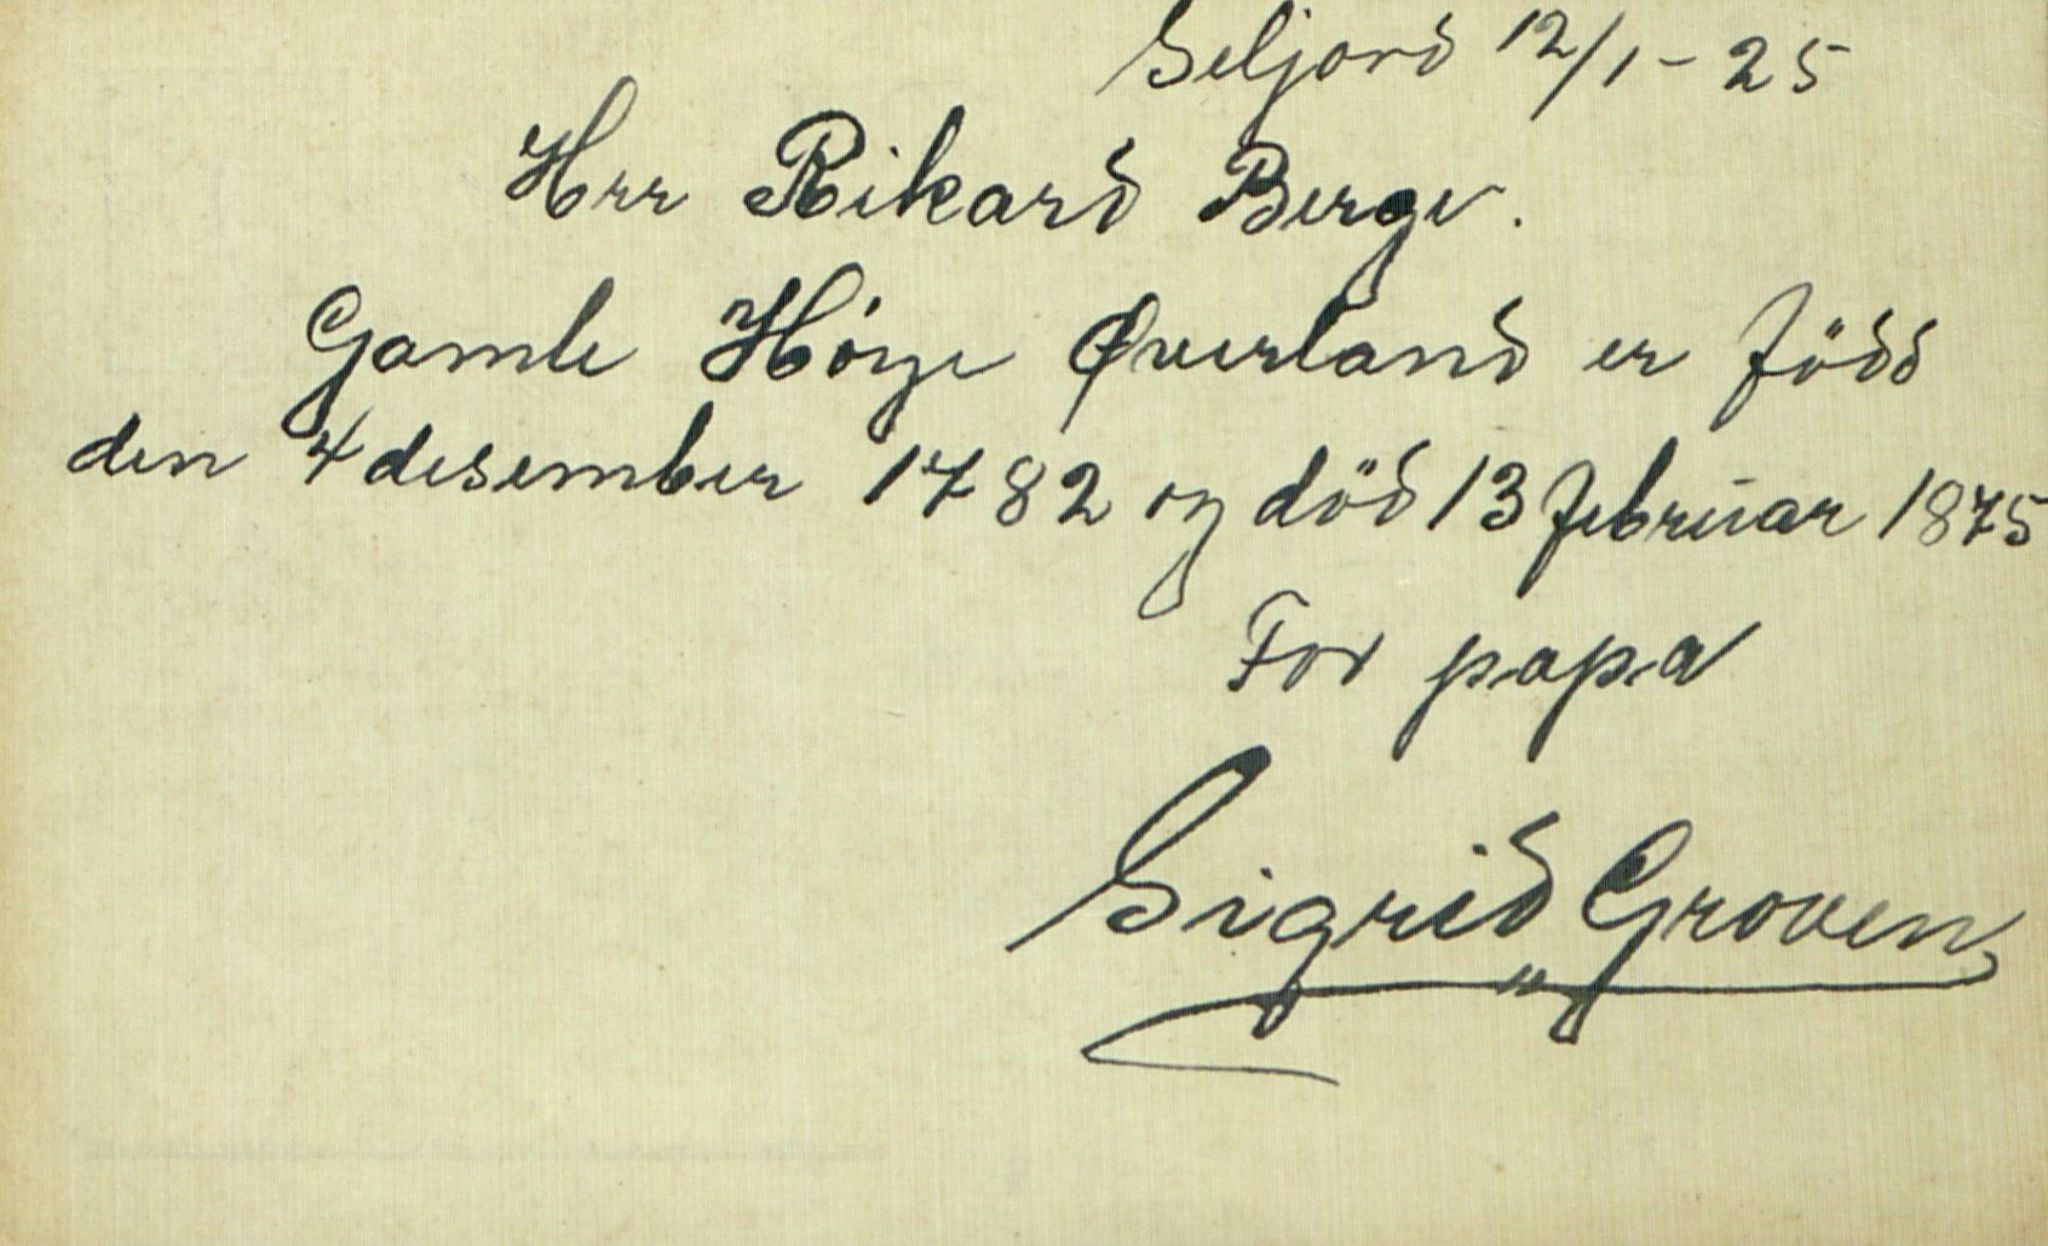 Seljord 12/1-25
Herr Rikard Berge.
Gamle Høye Øverland er född
den 4 desember 1782 og död 13 februar 1875
For papa
Sigrid Groven